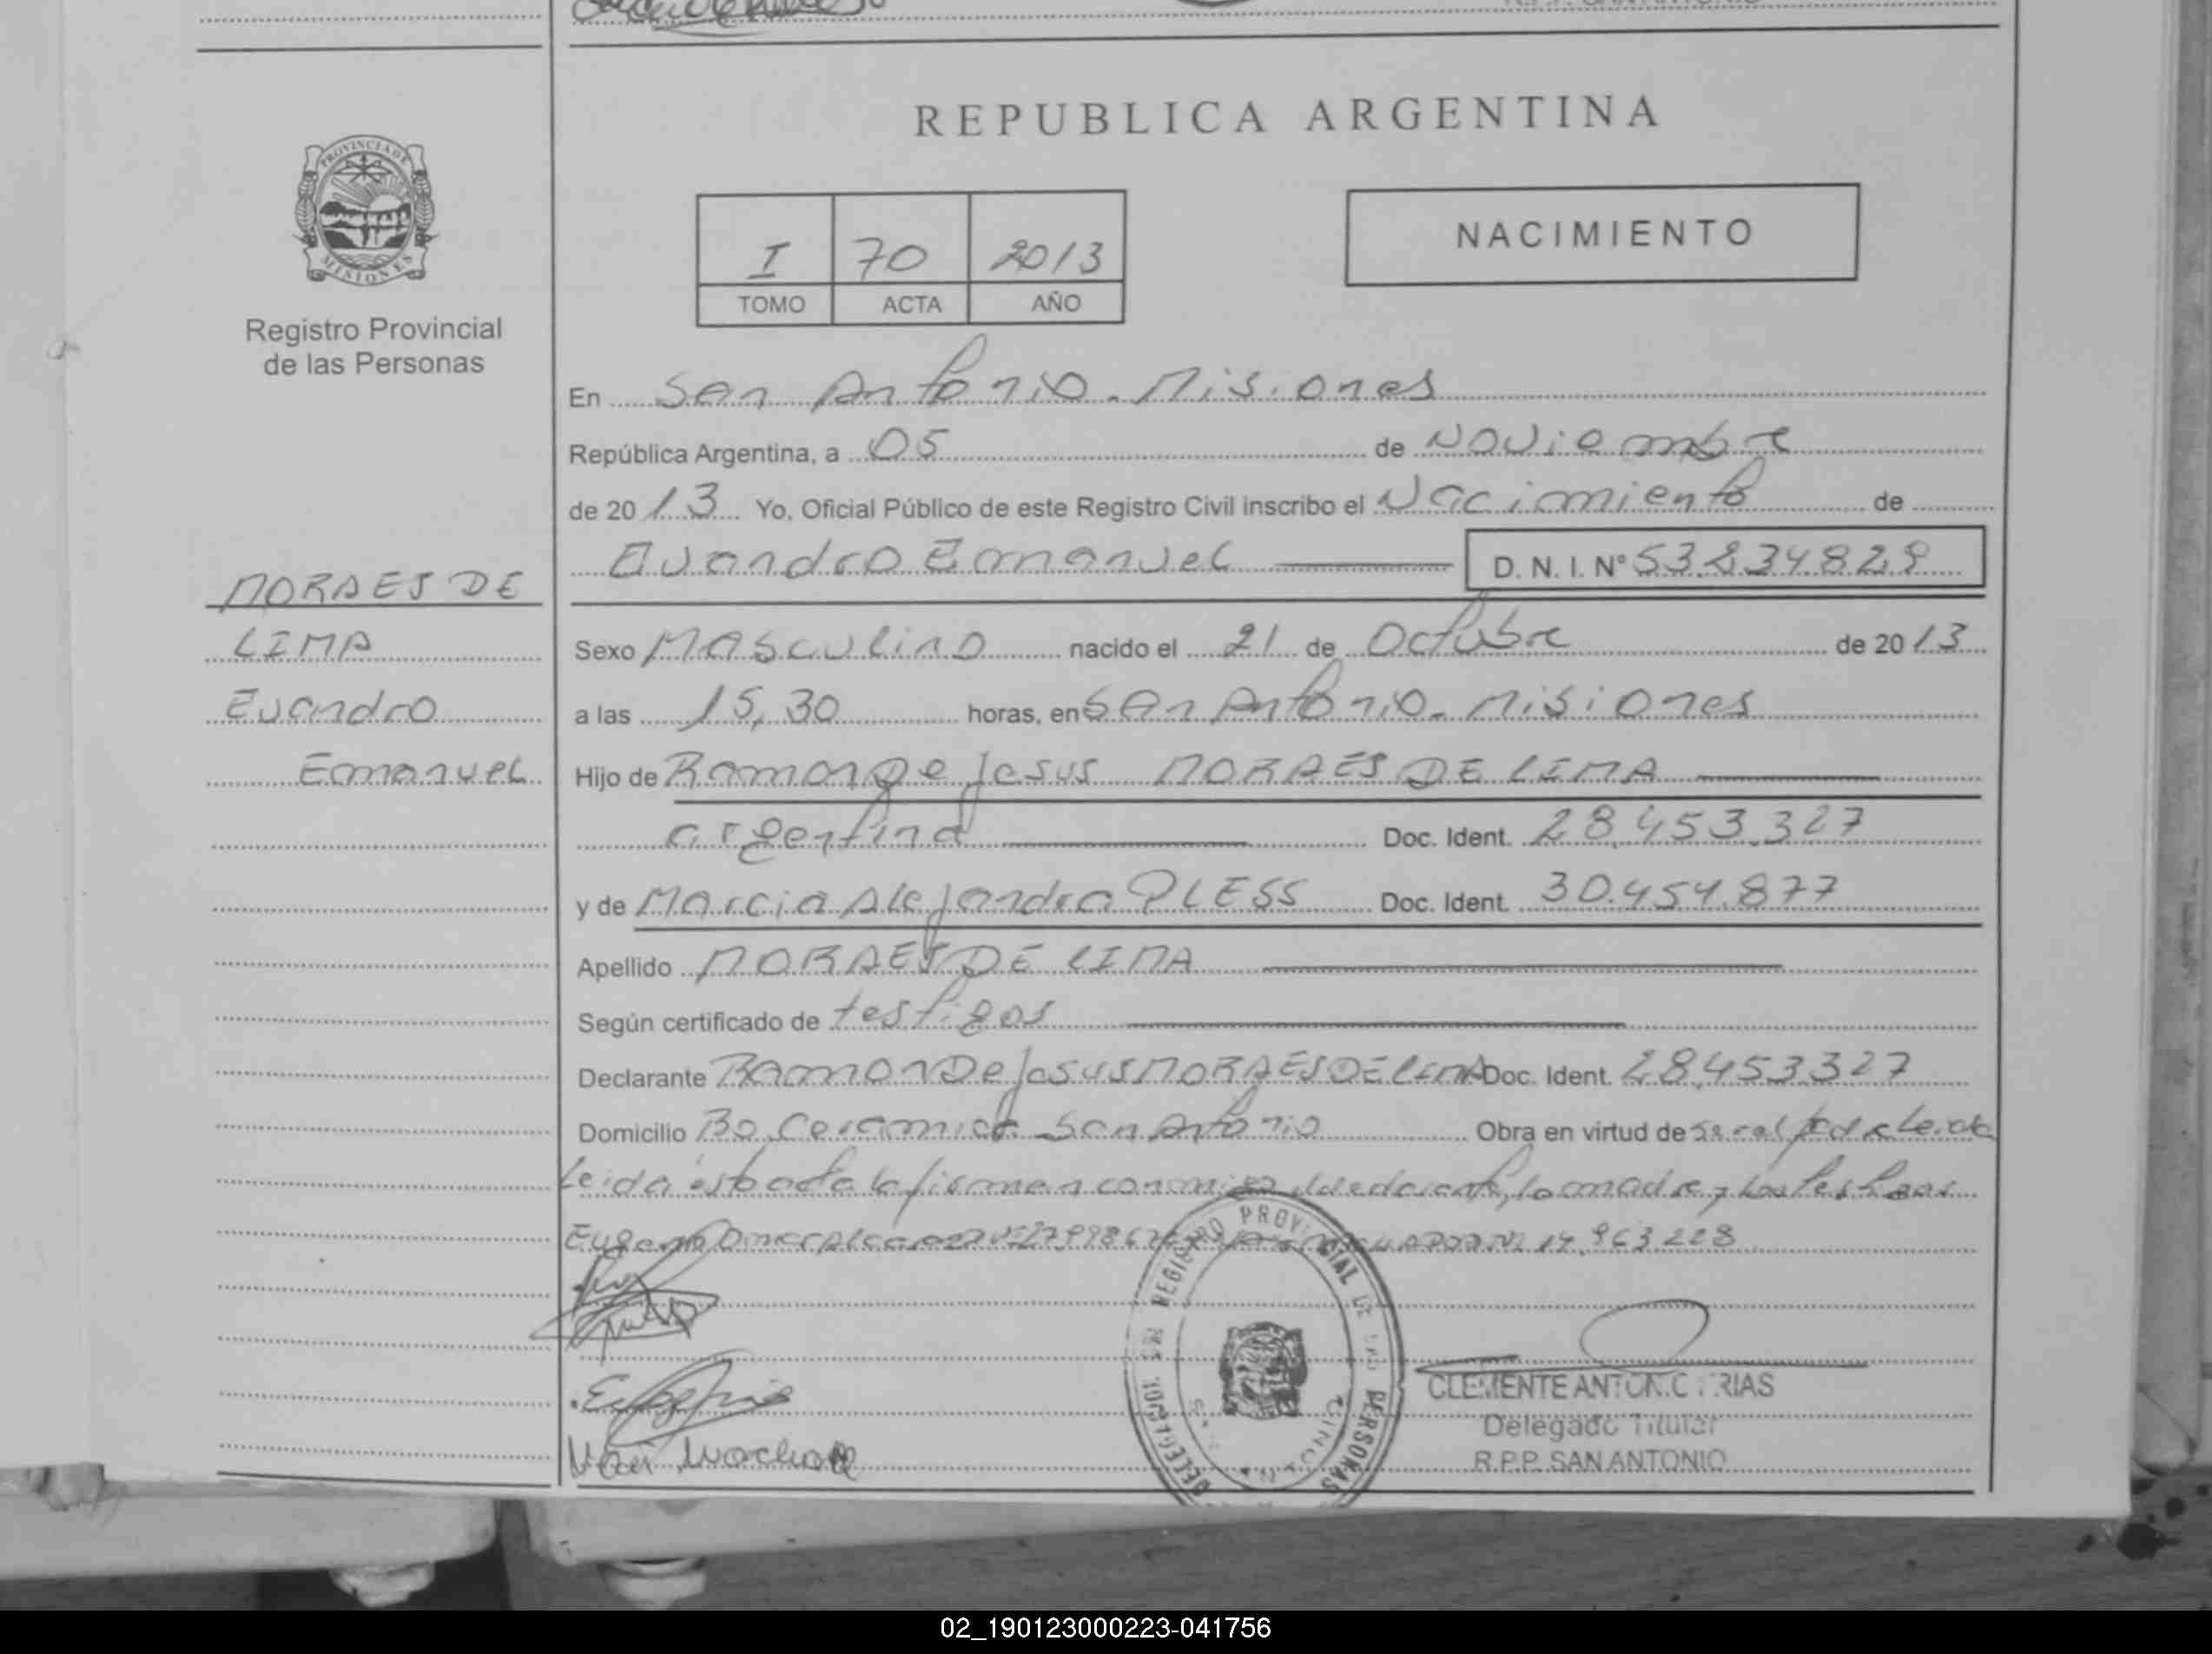 REPUBLICA ARGENTINA
PROVINCIA DE
MISIONES
Registro Provincial
de las Personas
I 70 2013
TOMO ACTA AÑO
NACIMIENTO
En San Antonio. Misiones
República Argentina, a 05 de Noviembre
de 2013 Yo, Oficial Público de este Registro Civil inscribo el Nacimiento de
Evandro Emanuel D. N. I. Nº
MORAES DE
LIMA
Evandro
Emanuel
Sexo MASculino nacido el 21 de Octubre de 2013
a las 15,30 horas, en San Antonio. Misiones
Hijo de Ramon De Jesus MORAES DE LIMA
argentina Doc. Ident. 28.453.327
y de Marcia Alejandra PLESS Doc. Ident. 30.454.877
Apellido MORAES DE LIMA
Según certificado de testigos
Declarante RAmon De Jesus MORAES DE LIMA Doc. Ident. 28.453.327
Domicilio Bo. Ceramica San Antonio Obra en virtud de
Leida esta acta la firman conmigo la madre y los testigos
Eugenio Omar 14.963.228
REGISTRO PROVINCIAL DE LAS PERSONAS
CLEMENTE ANTONIO
Delegado Titular
R.P.P. SAN ANTONIO
02_190123000223-041756